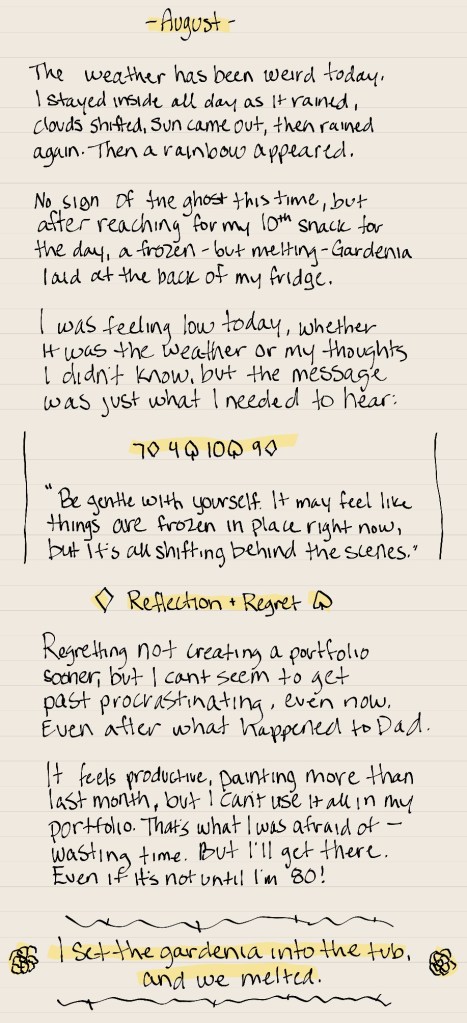 - August -
The weather has been weird today.
I stayed inside all day as it rained,
clouds shifted, sun came out, then rained
again. Then a rainbow appeared.
No sign of the ghost this time, but
after reaching for my 10th snack for
the day, a frozen - but melting - Gardenia
laid at the back of my fridge.
I was feeling low today, whether
it was the weather or my thoughts
I didn't know, but the message
was just what I needed to hear:
7♢ 4♤ 10♤ 9♢
"Be gentle with yourself. It may feel like
things are frozen in place right now,
but it's all shifting behind the scenes."
♢ Reflection + Regret ♤
Regretting not creating a portfolio
sooner, but I cant seem to get
past procrastinating, even now.
Even after what happened to Dad.
It feels productive, painting more than
last month, but I can't use it all in my
portfolio. That's what I was afraid of -
wasting time. But I'll get there.
Even if it's not until I'm '80!
I set the gardenia into the tub,
and we melted.